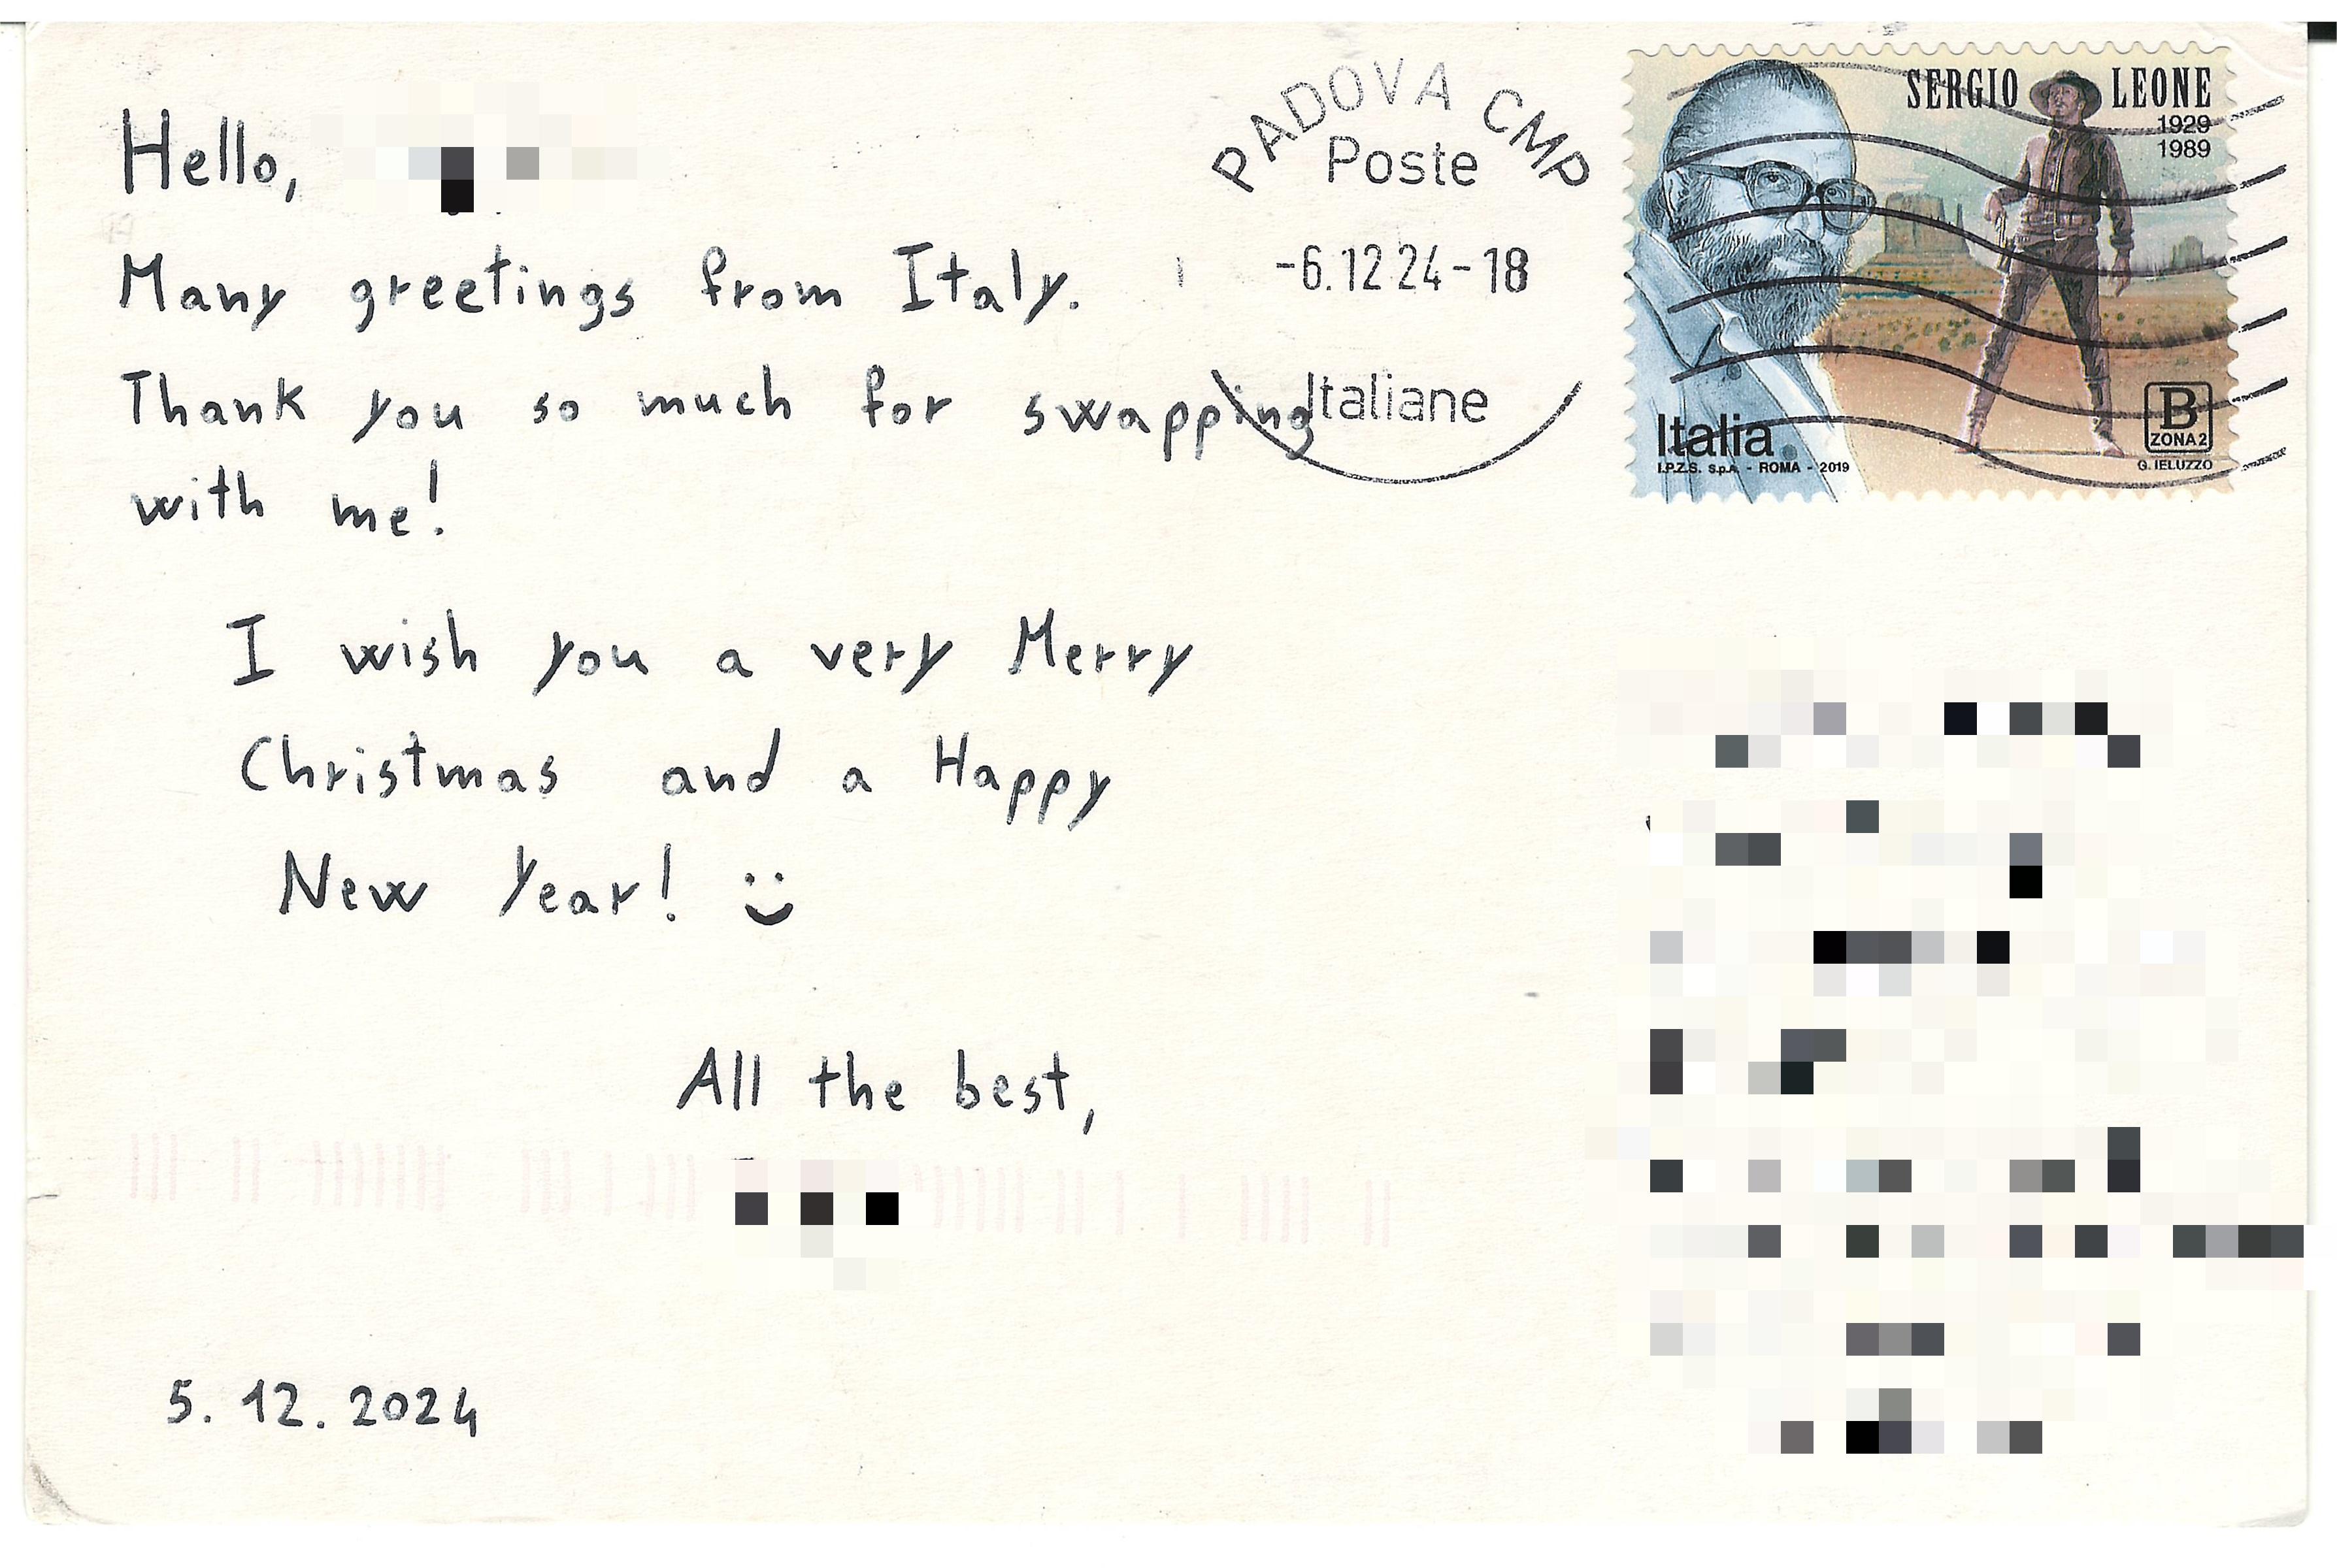 Hello,
Many greetings from Italy.
Thank you so much for swapping
with me!
I wish you a very Merry
Christmas and a Happy
New Year! :)
All the best,
5. 12. 2024
PADOVA CMP
Poste
-6.12 24-18
Italiane
SERGIO LEONE
1929
1989
Italia
I.P.Z.S. S.p.A. - ROMA - 2019
B
ZONA 2
G. IELUZZO